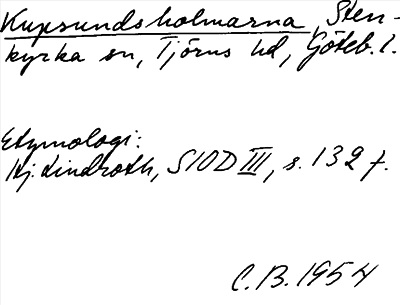 Kupsundsholmarna, Sten-
kyrka sn, Tjörns hd, Göteb. l.
Etymologi:
Hj. Lindroth, SIOD III, s. 132 f.
C.B. 1954